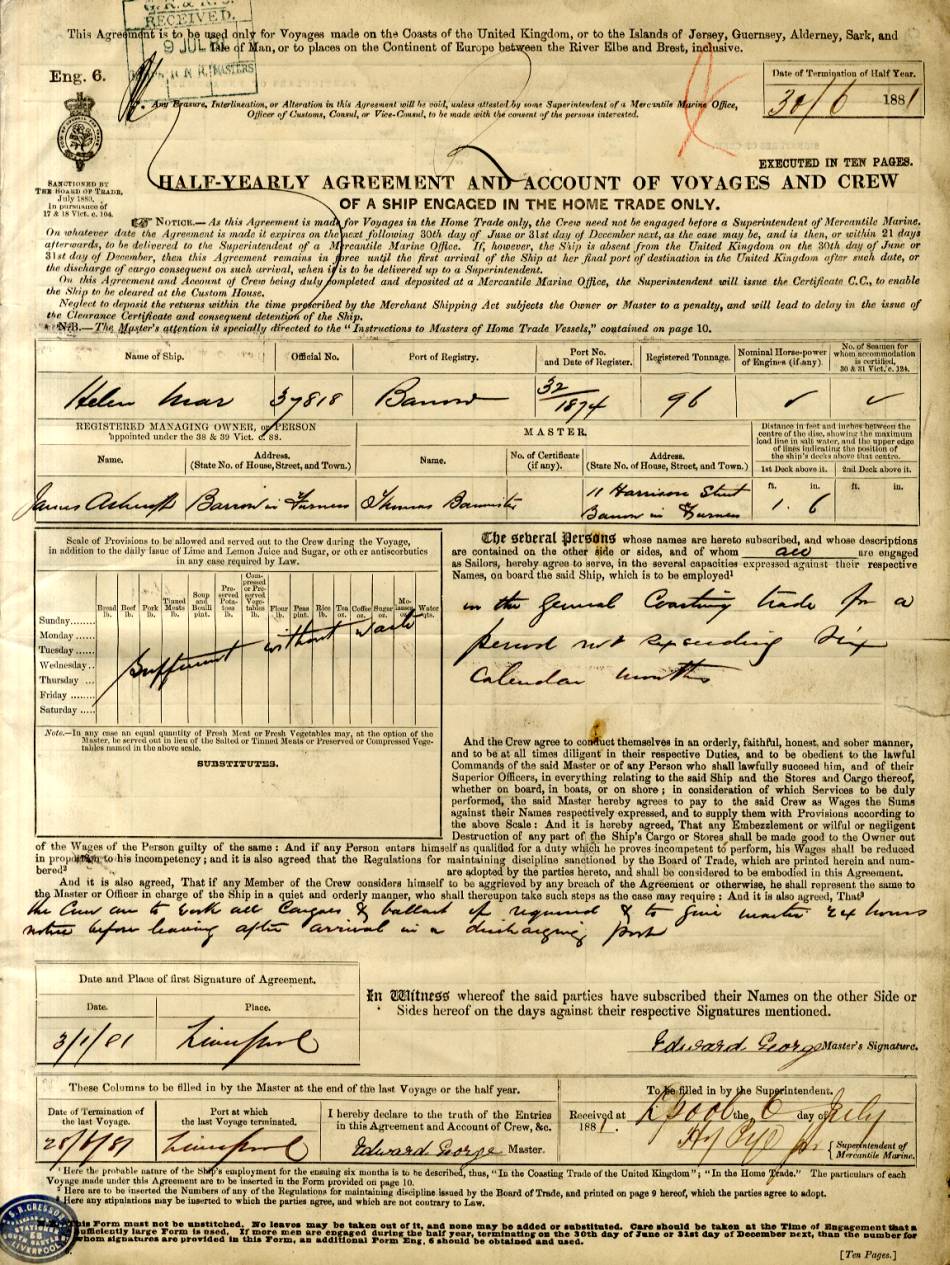 RECEIVED.
9 JUL
MASTERS
This Agreement is to be used only for Voyages made on the Coasts of the United Kingdom, or to the Islands of Jersey, Guernsey, Alderney, Sark, and
Isle of Man, or to places on the Continent of Europe between the River Elbe and Brest, inclusive.
Eng. 6.
Any Erasure, Interlineation, or Alteration in this Agreement will be void, unless attested by some Superintendent of a Mercantile Marine Office,
Officer of Customs, Consul, or Vice-Consul, to be made with the consent of the persons interested.
Date of Termination of Half Year.
30/6 1881
SANCTIONED BY
THE BOARD OF TRADE,
July 1880,
In pursuance of
17 & 18 Vict. c. 104.
EXECUTED IN TEN PAGES.
HALF-YEARLY AGREEMENT AND ACCOUNT OF VOYAGES AND CREW
OF A SHIP ENGAGED IN THE HOME TRADE ONLY.
NOTICE.—As this Agreement is made for Voyages in the Home Trade only, the Crew need not be engaged before a Superintendent of Mercantile Marine.
On whatever date the Agreement is made it expires on the next following 30th day of June or 31st day of December next, as the case may be, and is then, or within 21 days
afterwards, to be delivered to the Superintendent of a Mercantile Marine Office. If, however, the Ship is absent from the United Kingdom on the 30th day of June or
31st day of December, then this Agreement remains in force until the first arrival of the Ship at her final port of destination in the United Kingdom after such date, or
the discharge of cargo consequent on such arrival, when it is to be delivered up to a Superintendent.
On this Agreement and Account of Crew being duly completed and deposited at a Mercantile Marine Office, the Superintendent will issue the Certificate C.C., to enable
the Ship to be cleared at the Custom House.
Neglect to deposit the returns within the time prescribed by the Merchant Shipping Act subjects the Owner or Master to a penalty, and will lead to delay in the issue of
the Clearance Certificate and consequent detention of the Ship.
N.B.—The Master's attention is specially directed to the "Instructions to Masters of Home Trade Vessels," contained on page 10.
Name of Ship. Official No. Port of Registry. Port No. and Date of Register. Registered Tonnage. Nominal Horse-power of Engines (if any). No. of Seamen for whom accommodation is certified, 30 & 31 Vict. c. 124.
Helen Mar 37818 Barrow 32/1874 96
REGISTERED MANAGING OWNER, or PERSON
appointed under the 38 & 39 Vict. c. 88.
MASTER.
Distance in feet and inches between the
centre of the disc, showing the maximum
load line in salt water, and the upper edge
of lines indicating the position of
the ship's decks above that centre.
Name. Address. (State No. of House, Street, and Town.) Name. No. of Certificate (if any). Address. (State No. of House, Street, and Town.) 1st Deck above it. 2nd Deck above it.
ft. in. ft. in.
James Ashcroft Barrow in Furness Thomas Bannister 11 Harrison Street Barrow in Furness 1. 6
Scale of Provisions to be allowed and served out to the Crew during the Voyage,
in addition to the daily issue of Lime and Lemon Juice and Sugar, or other antiscorbutics
in any case required by Law.
Bread lb. Beef lb. Pork lb. Tinned Meats lb. Soup and Bouilli pint. Preserved Potatoes lb. Compressed or Preserved Vegetables lb. Flour lb. Peas pint. Rice lb. Tea oz. Coffee oz. Sugar oz. Molasses oz. Water qts.
Sunday
Monday
Tuesday
Wednesday
Thursday
Friday
Saturday
Sufficient without waste
Note.—In any case an equal quantity of Fresh Meat or Fresh Vegetables may, at the option of the
Master, be served out in lieu of the Salted or Tinned Meats or Preserved or Compressed Vege-
tables named in the above scale.
SUBSTITUTES.
The several Persons whose names are hereto subscribed, and whose descriptions
are contained on the other side or sides, and of whom all are engaged
as Sailors, hereby agree to serve, in the several capacities expressed against their respective
Names, on board the said Ship, which is to be employed¹
in the General Coasting trade for a
period not exceeding six
Calendar months
And the Crew agree to conduct themselves in an orderly, faithful, honest, and sober manner,
and to be at all times diligent in their respective Duties, and to be obedient to the lawful
Commands of the said Master or of any Person who shall lawfully succeed him, and of their
Superior Officers, in everything relating to the said Ship and the Stores and Cargo thereof,
whether on board, in boats, or on shore; in consideration of which Services to be duly
performed, the said Master hereby agrees to pay to the said Crew as Wages the Sums
against their Names respectively expressed, and to supply them with Provisions according to
the above Scale: And it is hereby agreed, That any Embezzlement or wilful or negligent
Destruction of any part of the Ship's Cargo or Stores shall be made good to the Owner out
of the Wages of the Person guilty of the same: And if any Person enters himself as qualified for a duty which he proves incompetent to perform, his Wages shall be reduced
in proportion to his incompetency; and it is also agreed that the Regulations for maintaining discipline sanctioned by the Board of Trade, which are printed herein and num-
bered² are adopted by the parties hereto, and shall be considered to be embodied in this Agreement.
And it is also agreed, That if any Member of the Crew considers himself to be aggrieved by any breach of the Agreement or otherwise, he shall represent the same to
the Master or Officer in charge of the Ship in a quiet and orderly manner, who shall thereupon take such steps as the case may require: And it is also agreed, That³
the Crew are to work all Cargoes & ballast if required & to give master 24 hours
notice before leaving after arrival in a discharging port
Date and Place of first Signature of Agreement.
Date. Place.
3/1/81 Liverpool
In Witness whereof the said parties have subscribed their Names on the other Side or
Sides hereof on the days against their respective Signatures mentioned.
Edward George Master's Signature.
These Columns to be filled in by the Master at the end of the last Voyage or the half year.
Date of Termination of the last Voyage. Port at which the last Voyage terminated.
I hereby declare to the truth of the Entries
in this Agreement and Account of Crew, &c.
Liverpool Edward George Master.
To be filled in by the Superintendent.
Received at L'pool the 6 day of July
1881.
Superintendent of
Mercantile Marine.
¹ Here the probable nature of the Ship's employment for the ensuing six months is to be described, thus, "In the Coasting Trade of the United Kingdom"; "In the Home Trade." The particulars of each
Voyage made under this Agreement are to be inserted in the Form provided on page 10.
² Here are to be inserted the Numbers of any of the Regulations for maintaining discipline issued by the Board of Trade, and printed on page 9 hereof, which the parties agree to adopt.
³ Here any stipulations may be inserted to which the parties agree, and which are not contrary to Law.
This Form must not be unstitched. No leaves may be taken out of it, and none may be added or substituted. Care should be taken at the Time of Engagement that a
sufficiently large Form is used. If more men are engaged during the half year, terminating on the 30th day of June or 31st day of December next, than the number for
whom signatures are provided in this Form, an additional Form Eng. 6 should be obtained and used.
[Ten Pages.]
LIVERPOOL